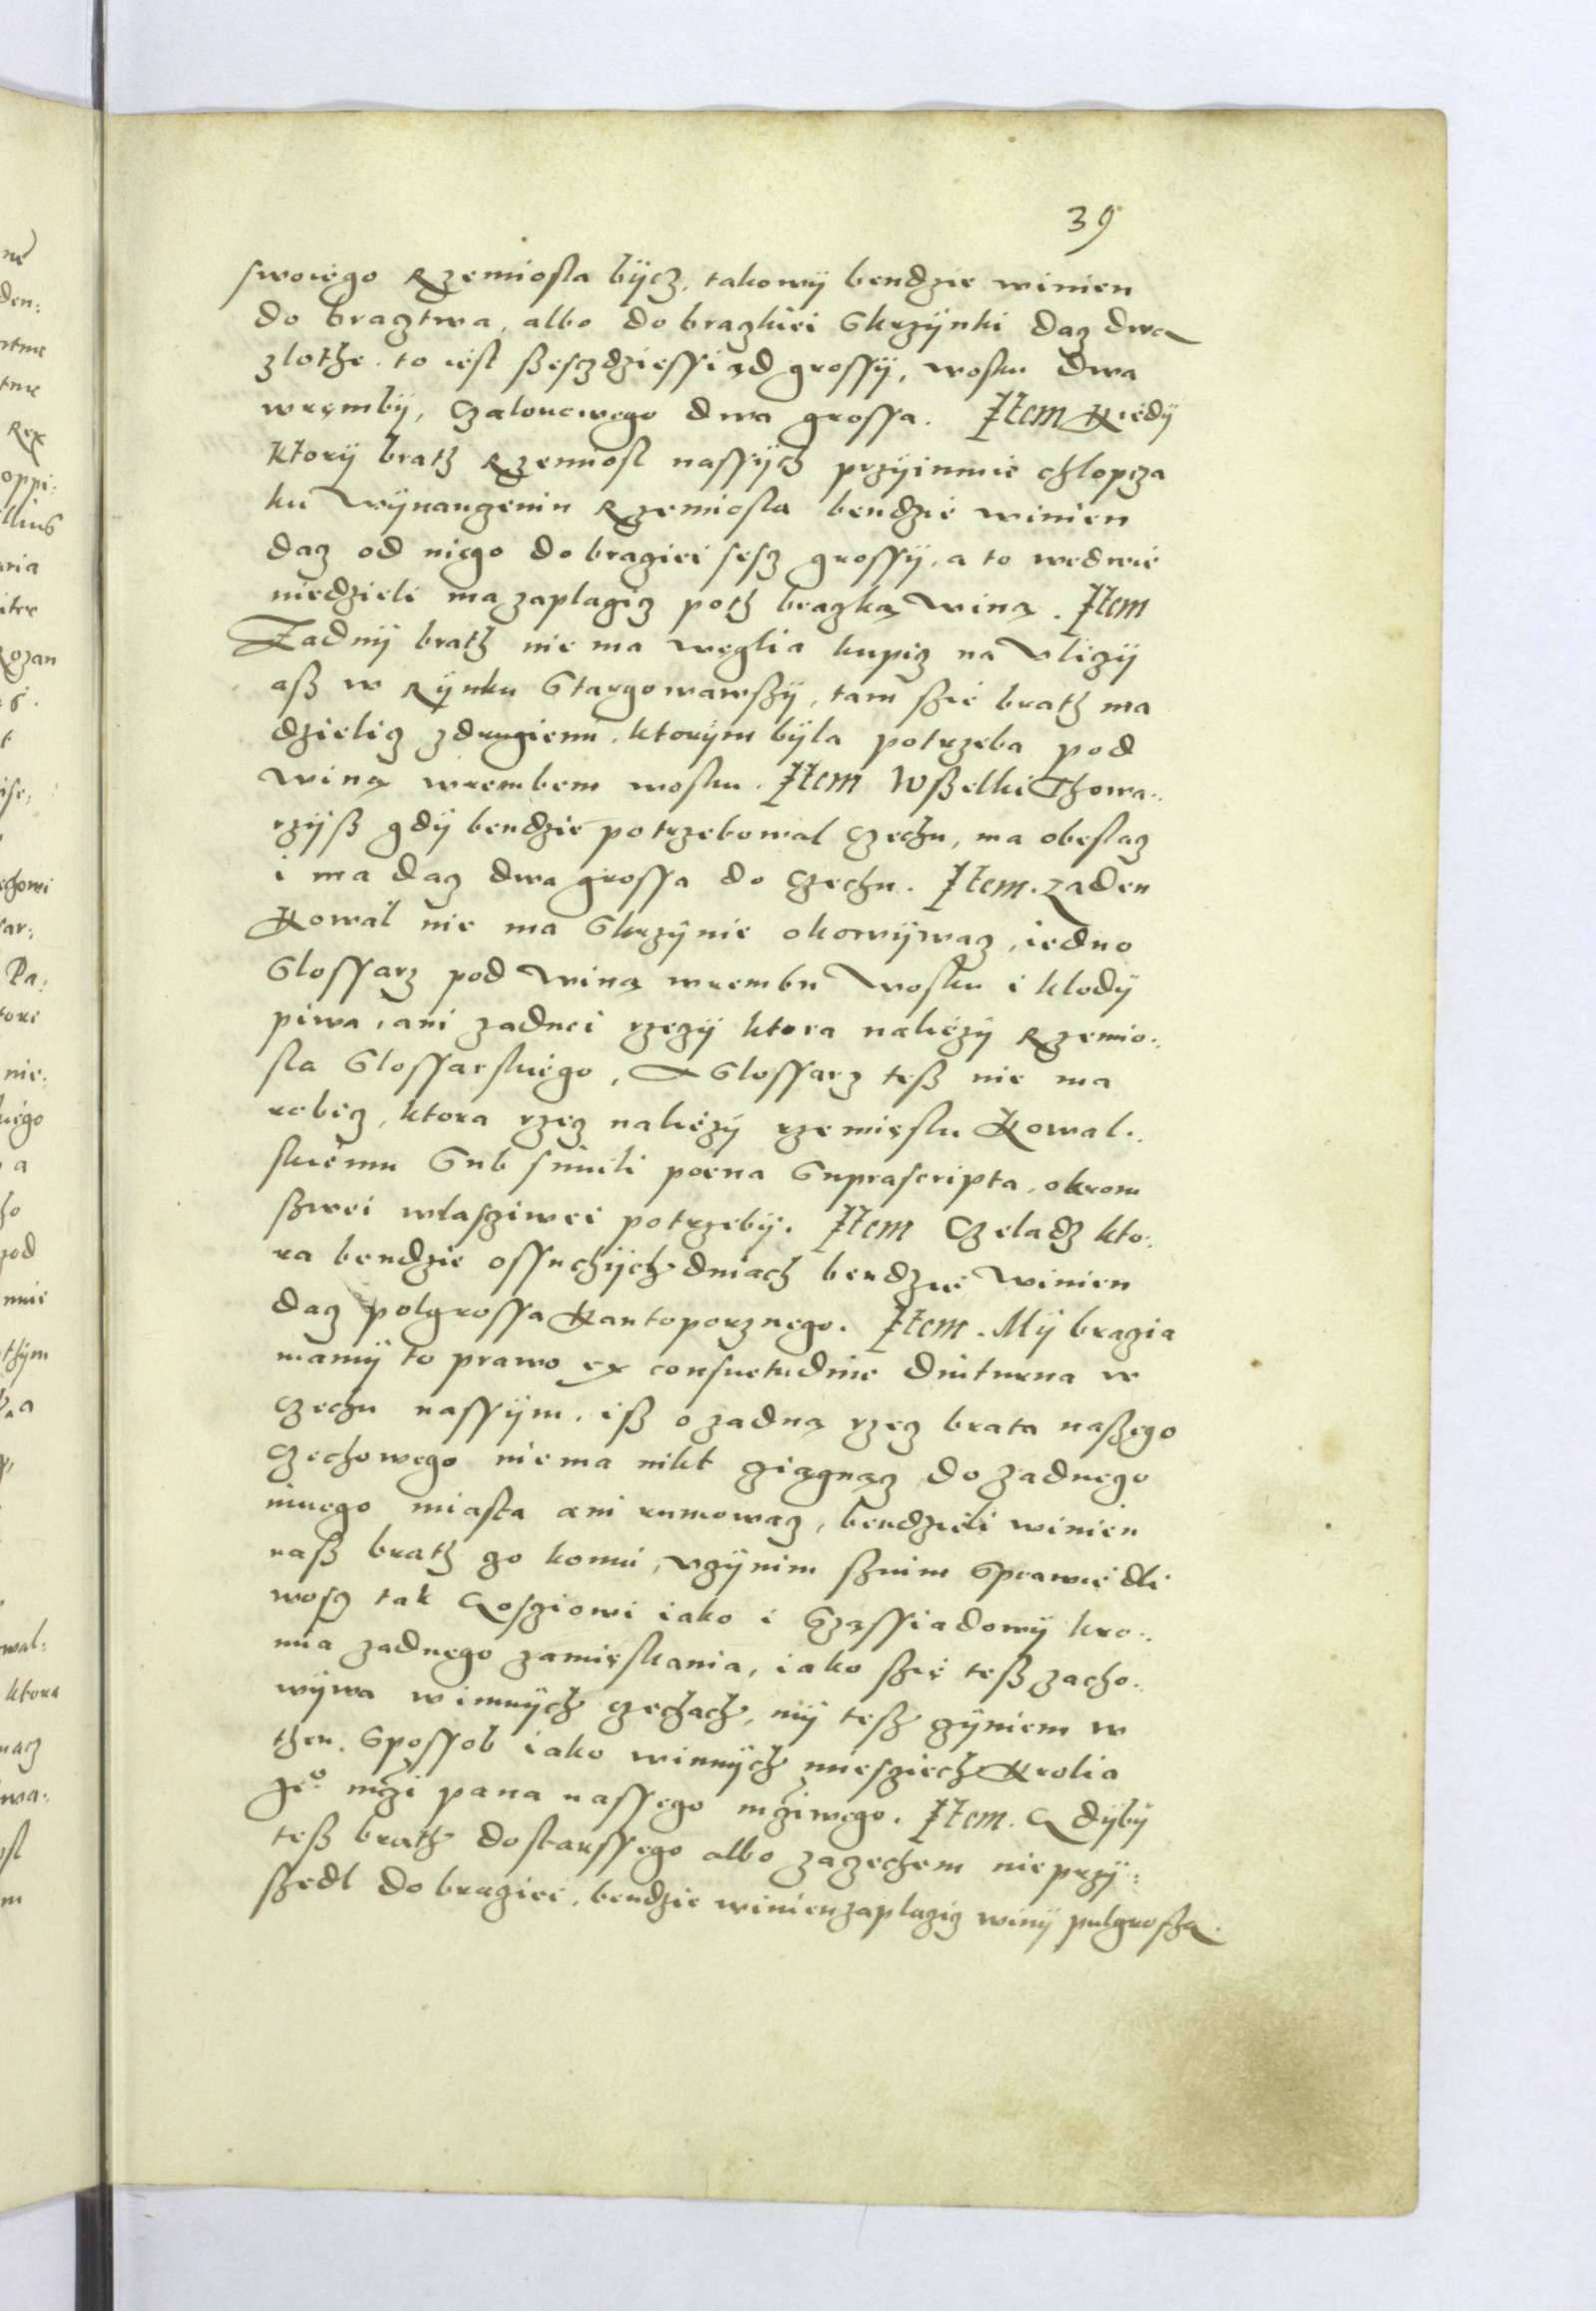 39
swoiego Rzemiosla bÿcz, takowÿ bendzie winien
do bracztwa, albo do braczkiei Skrzÿnki dacz dwa
zlothe. to iest ßesczdziessiąd grossÿ, wosku dwa
wrembÿ, czalonewego dwa grossa. Item Kiedÿ
ktorÿ brath Rzemiosl nassÿch przÿimmie chlopcza
ku wÿnauczeniu Rzemiosla bendzie winien
dacz od niego do braciei sescz grossÿ, a to wedwie
niedzieli ma zaplacicz poth braczką winą. Item
Zadnÿ brath nie ma weglia kupicz na Vliczÿ
aß w Rÿnku Stargowawßÿ, tam ßie brath ma
dzielicz zdrugiemi. ktorÿm bÿla potrzeba pod
winą wrembem wosku. Item Wßelki Thowa:
rzÿß gdÿ bendzie potrzebowal czechu, ma obeslacz
i ma dacz dwa grossa do czechu. Item. zaden
Kowal nie ma Skrzÿnie okowÿwacz, iedno
Slossarz pod winą wrembu wosku i klodÿ
piwa, ani zadnei rzeczÿ ktora należÿ Rzemio:
sla Slossarskiego, A Slossarz teß nie ma
robicz, ktora rzecz należÿ rzemięslu Kowal:
skiemu Sub simili poena Suprascripta, okrom
ßwei wlasziwei potrzebÿ. Item Czeladz kto:
ra bendzie ossuchÿch dniach bendzie winien
dacz polgrossa Kantoporznego. Item. Mÿ bracia
mamÿ to prawo ex consuetudine diuturna w
czechu nassÿm, iß o zadną rzecz brata naßego
czechowego nie ma nikt ciągnącz do zadnego
innego miasta ani rumowacz, bendzieli winien
naß brath go komu, vczÿnim ßnim Sprawiedli
woscz tak Gosciowi iako i Sząssiadowÿ kro:
mia zadnego zamięskania, iako ßię teß zacho:
wÿwa winnÿch czechach, mÿ teß czÿniem w
then Spossob iako winnÿch miescziech Krolia
Je° mczi pana nassego mcziwego. Item. Gdÿbÿ
teß brath dostarssego albo zaczechem nie przÿ:
ßedl do braciei, bendzie winien zaplacicz winÿ pulgroßa.